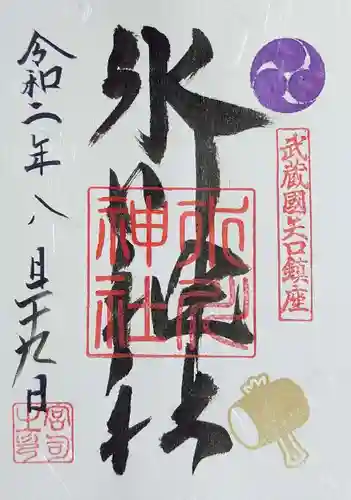 武蔵國矢口鎮座
氷川神社
氷川
神社
令和二年八月二十九日
宮司
之印